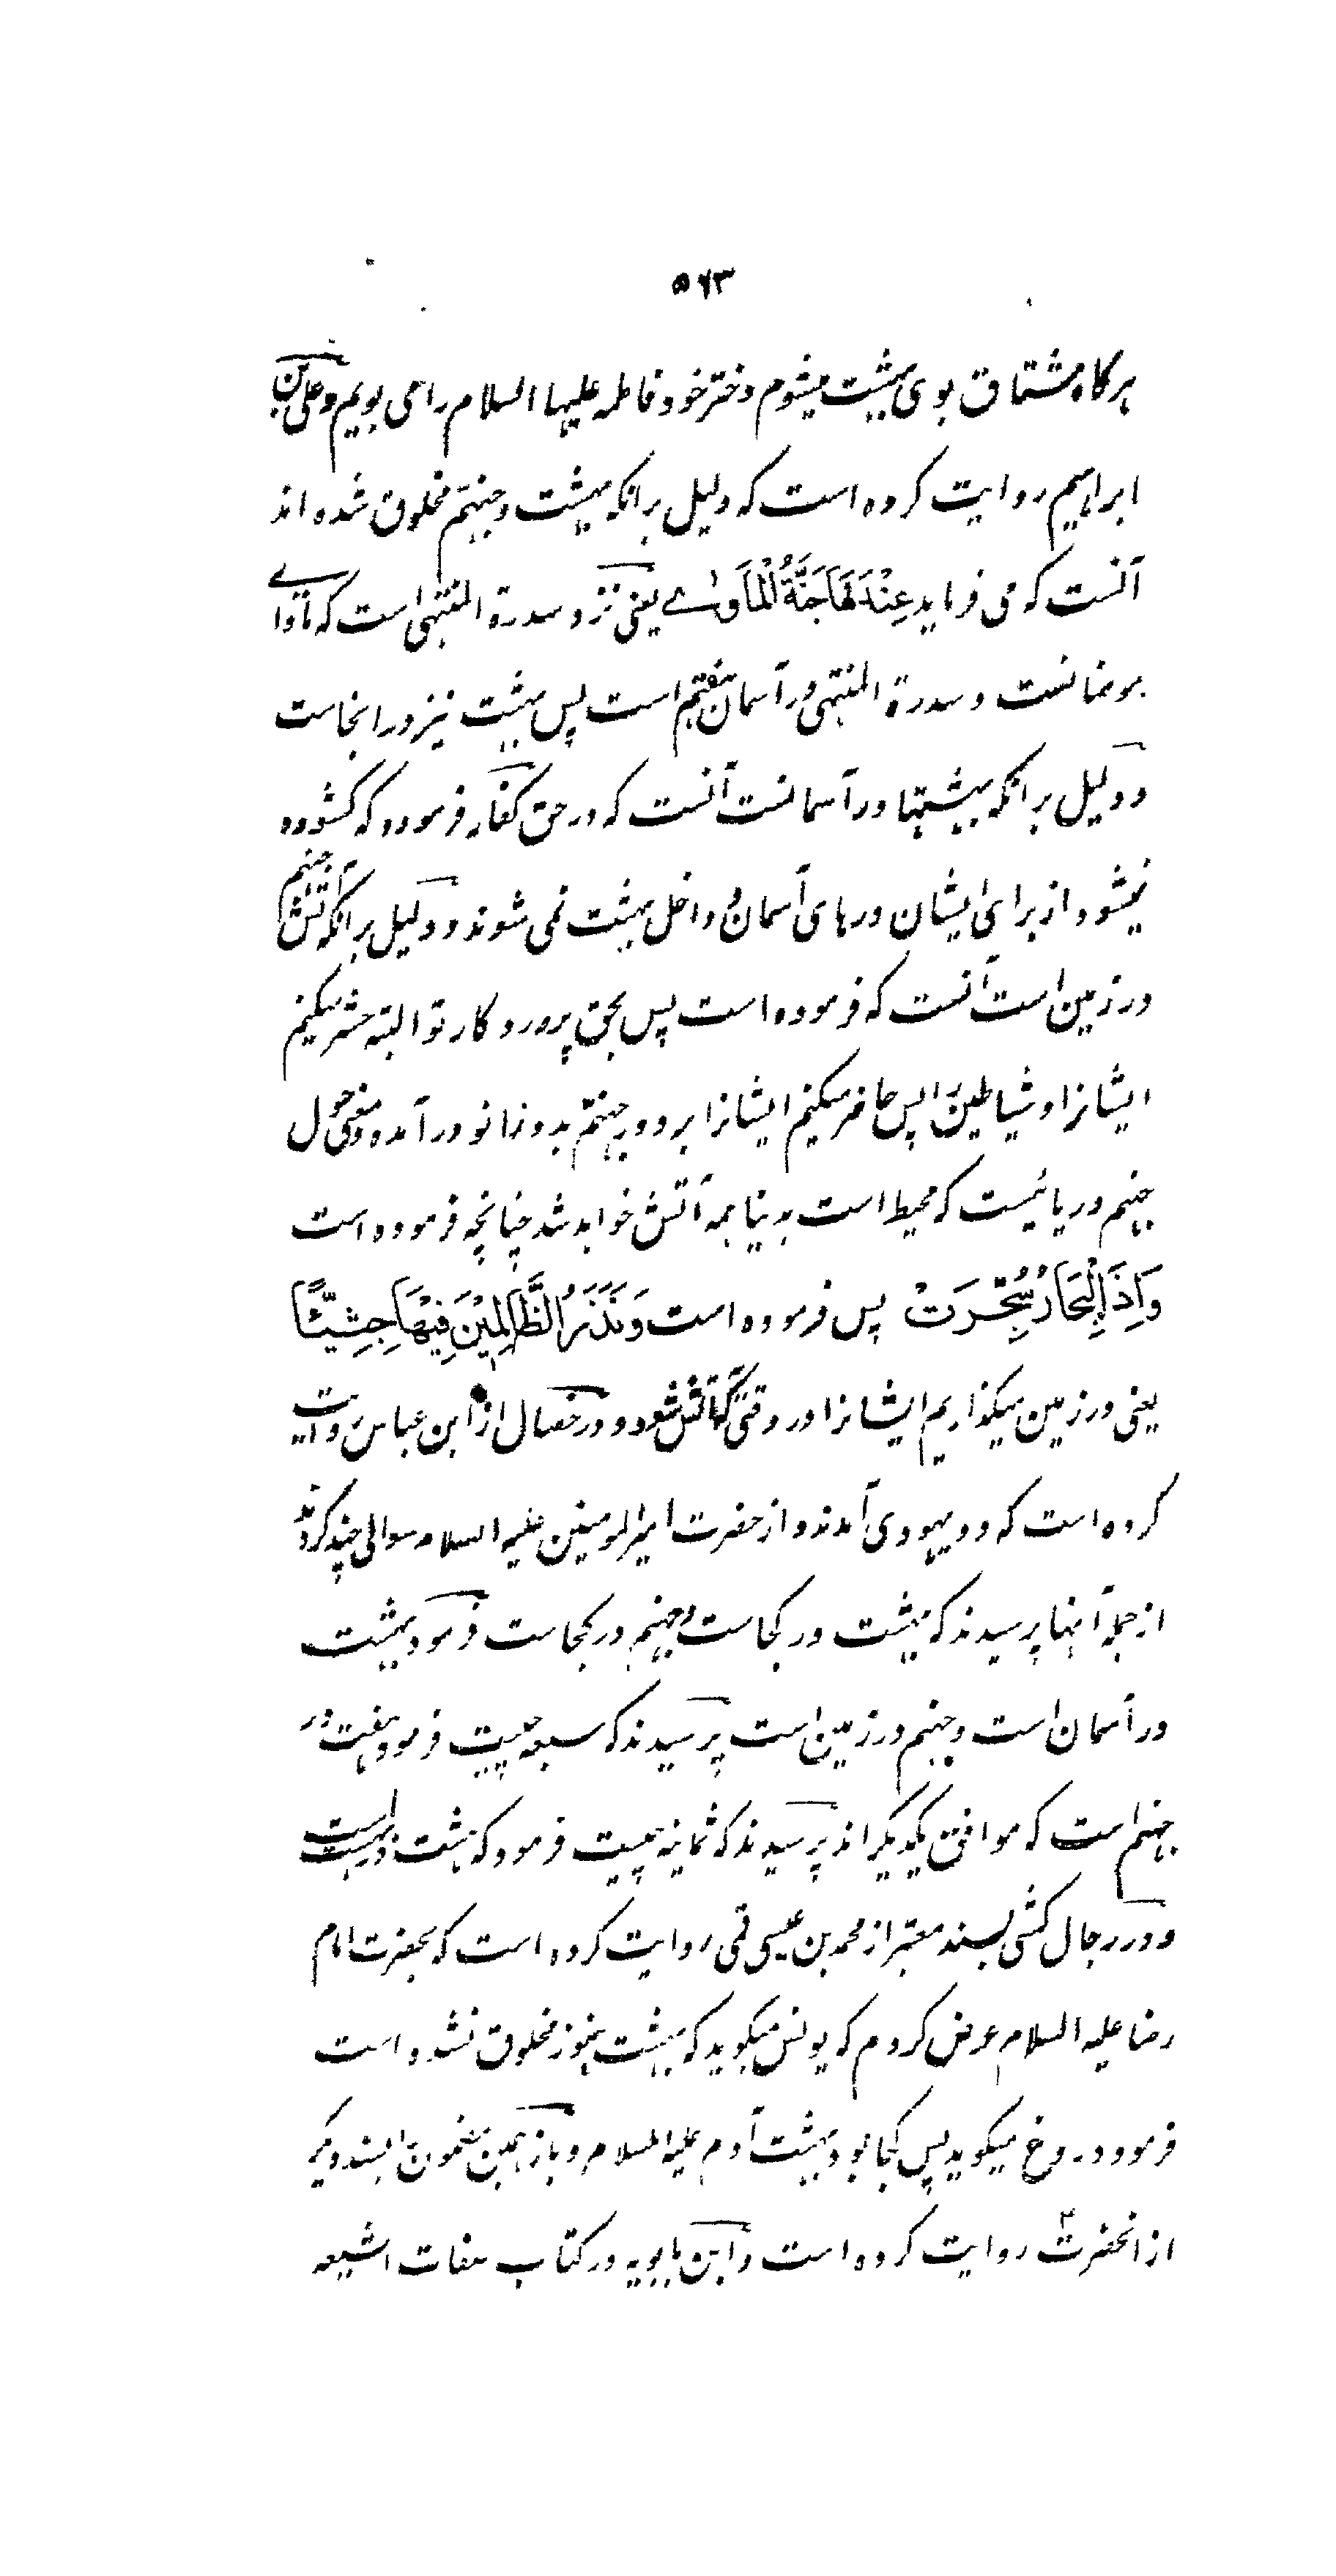 ۵۶۳
هرگاه مشتاق بوی بهشت میشوم دختر خود فاطمه علیها السلام را می بویم و علی بن
ابراهیم روایت کرده است که دلیل برانکه بهشت و جهنم مخلوق شده اند
آنست که می فرماید عِنْدَهَا جَنَّةُ الْمَأْوٰے یعنی نزد سدرة المنتهی است که ماوای
مومنانست و سدرة المنتهی در آسمان هفتم است پس بهشت نیز در انجاست
و دلیل برانکه بهشتها در آسمانست آنست که در حق کفار فرموده که کشوده
نمیشود از برای ایشان درهای آسمان و داخل بهشت نمی شوند و دلیل برآنکه آتش جهنم
در زمین است آنست که فرموده است پس بحق پروردگار تو البته حشر میکنیم
ایشانرا و شیاطین را پس حاضر میکنیم ایشانرا بر دور جهنم بدو زانو در آمده و معنی حول
جهنم دریائیست که محیط است بدنیا همه آتش خواهد شد چنانچه فرموده است
وَاِذَا الْبِحَارُ سُجِّرَتْ پس فرموده است وَنَذَرُ الظَّالِمِیْنَ فِیْهَا جِثِیًّا
یعنی در زمین میگذاریم ایشانرا در وقتی که آتش شود و در خصال از ابن عباس روایت
کرده است که دو یهودی آمدند و از حضرت امیرالمومنین علیه السلام سوالی چند کردند
از جمله آنها پرسیدند که بهشت در کجاست و جهنم در کجاست فرمود بهشت
در آسمان است و جهنم در زمین است پرسیدند که سبعه چیست فرمود هفت در
جهنم است که موافق یکدیگراند پرسیدند که ثمانیه چیست فرمود که هشت در بهشت است
و در رجال کشی بسند معتبر از محمد بن عیسی قمی روایت کرده است که بحضرت امام
رضا علیه السلام عرض کردم که یونس میگوید که بهشت هنوز مخلوق نشده است
فرمود دروغ میگوید پس کجا بود بهشت آدم علیه السلام و باز همین مضمون را بسند دیگر
از انحضرتؑ روایت کرده است و ابن بابویه در کتاب صفات الشیعه